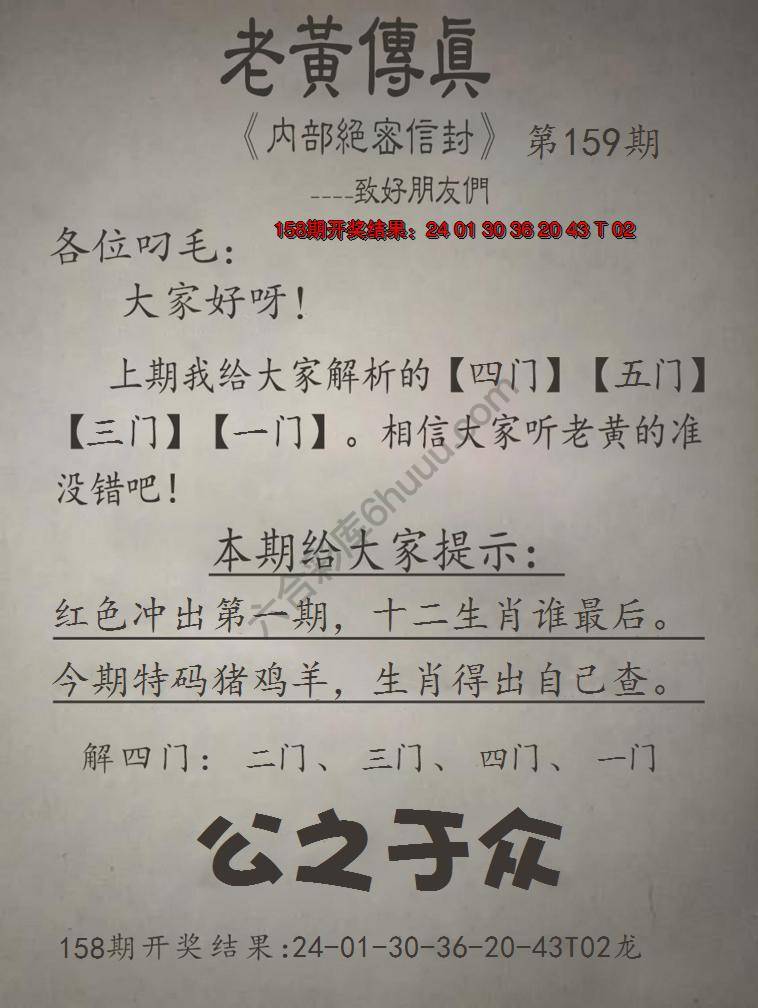 老黃傳眞
《内部絕密信封》 第159期
----致好朋友們
158期开奖结果：24 01 30 36 20 43 T 02
各位叼毛：
大家好呀！
上期我给大家解析的【四门】【五门】
【三门】【一门】。相信大家听老黄的准
没错吧！
本期给大家提示：
红色冲出第一期，十二生肖谁最后。
今期特码猪鸡羊，生肖得出自己查。
解四门： 二门、 三门、 四门、 一门
公之于众
158期开奖结果:24-01-30-36-20-43T02龙
六合彩库6huuu.com